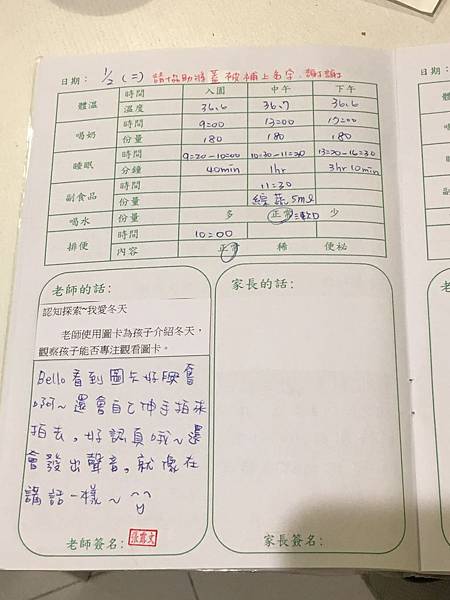 日期: 1/2 (二) 請協助將蓋被補上名字,謝謝
體溫 時間 入園 中午 下午
溫度 36.6 36.7 36.6
喝奶 時間 9:00 13:00 17:00
份量 180 180 180
睡眠 時間 9:20-10:00 10:30-11:30 13:20-16:30
分鐘 40min 1hr 3hr 10min
副食品 時間 11:30
份量 綜蔬 5ml
喝水 份量 多 正常 少
排便 時間 10:00
內容 正常 稀 便秘
老師的話:
認知探索~我愛冬天
老師使用圖卡為孩子介紹冬天,
觀察孩子能否專注觀看圖卡。
Bello看到圖卡好興奮
啊~還會自己伸手拍來
拍去,好認真哦~還
會發出聲音,就像在
講話一樣~
老師簽名:
家長的話:
家長簽名:
日期: